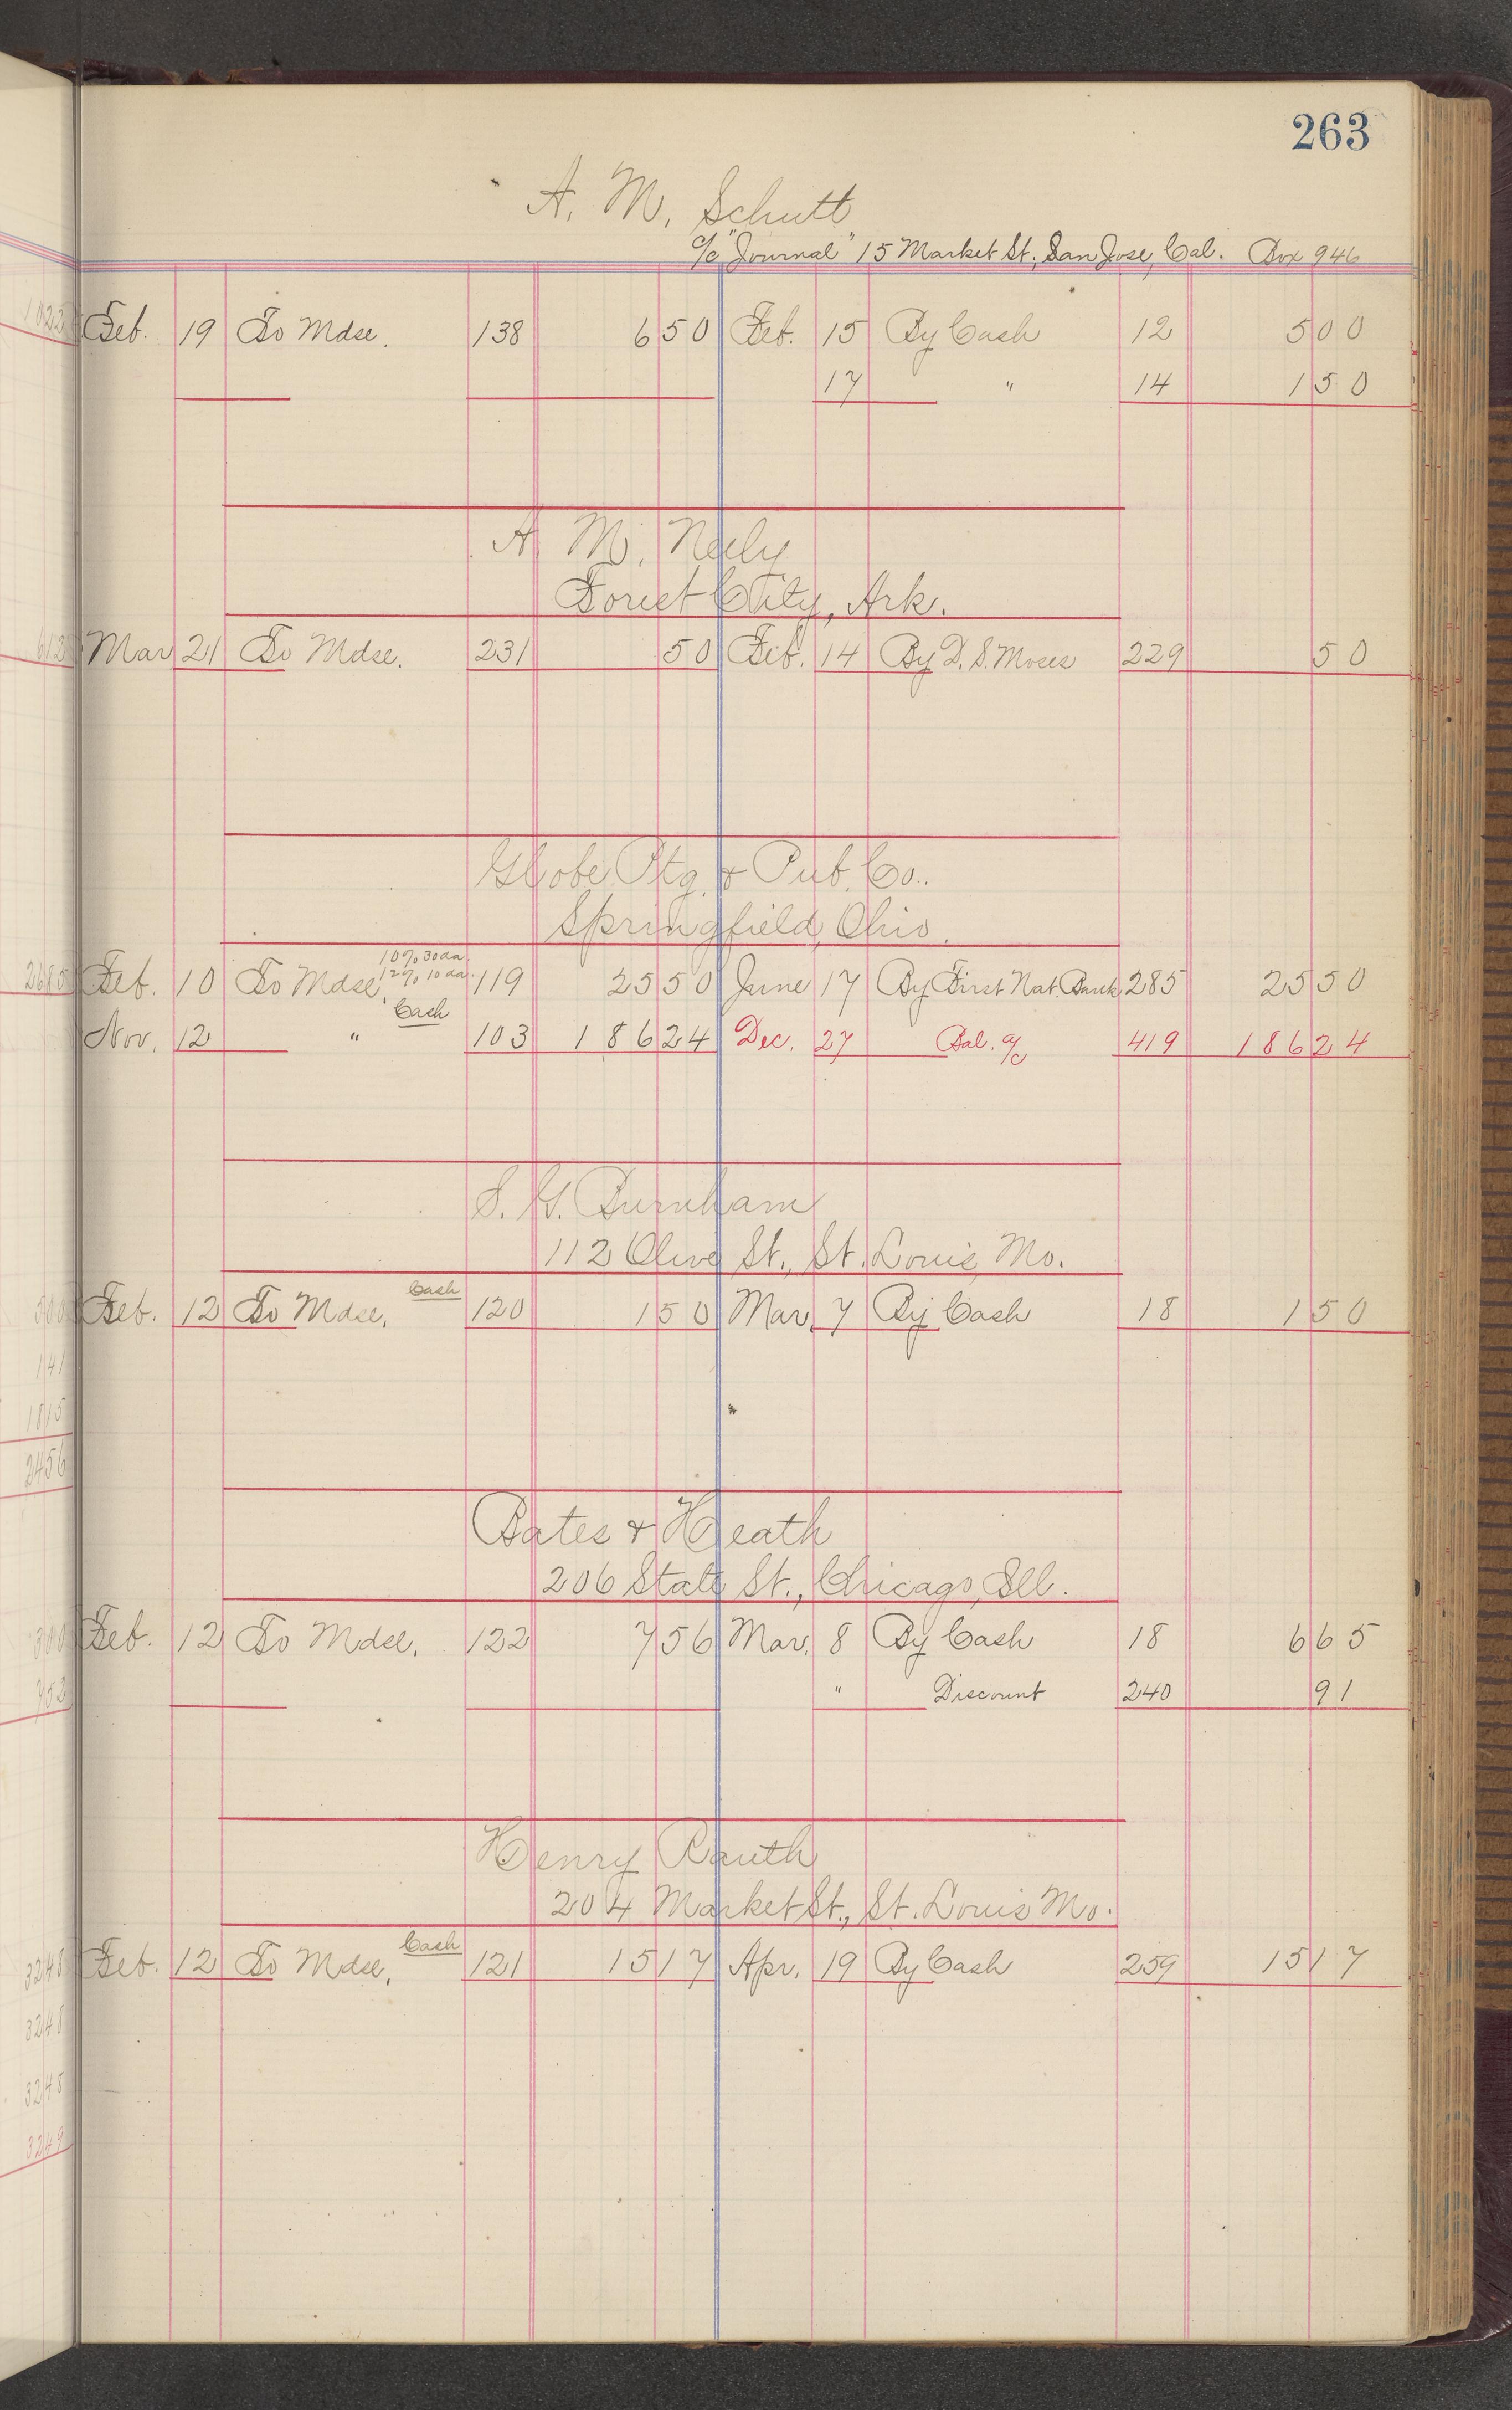 263
A. M. Schutt
c/o "Journal" 15 Market St., San Jose, Cal. Box 946
Feb. 19 To Mdse. 138 6 50 Feb. 15 By Cash 12 5 00
17 " 14 1 50
A. M. Neely
Forest City, Ark.
Mar 21 To Mdse. 231 50 Feb. 14 By D. S. Moses 229 50
Globe Ptg. & Pub. Co.
Springfield, Ohio.
10% 30 da.
Feb. 10 To Mdse. 12% 10 da. 119 25 50 June 17 By First Nat. Bank 285 25 50
Cash
Nov. 12 " 103 186 24 Dec. 27 Bal. a/c 419 186 24
S. G. Burnham
112 Olive St., St. Louis, Mo.
Feb. 12 To Mdse. Cash 120 1 50 Mar. 7 By Cash 18 1 50
Bates & Heath
206 State St., Chicago, Ill.
Feb. 12 To Mdse. 122 7 56 Mar. 8 By Cash 18 6 65
" Discount 240 91
Henry Rauth
204 Market St., St. Louis Mo.
Feb. 12 To Mdse. Cash 121 15 17 Apr. 19 By Cash 259 15 17